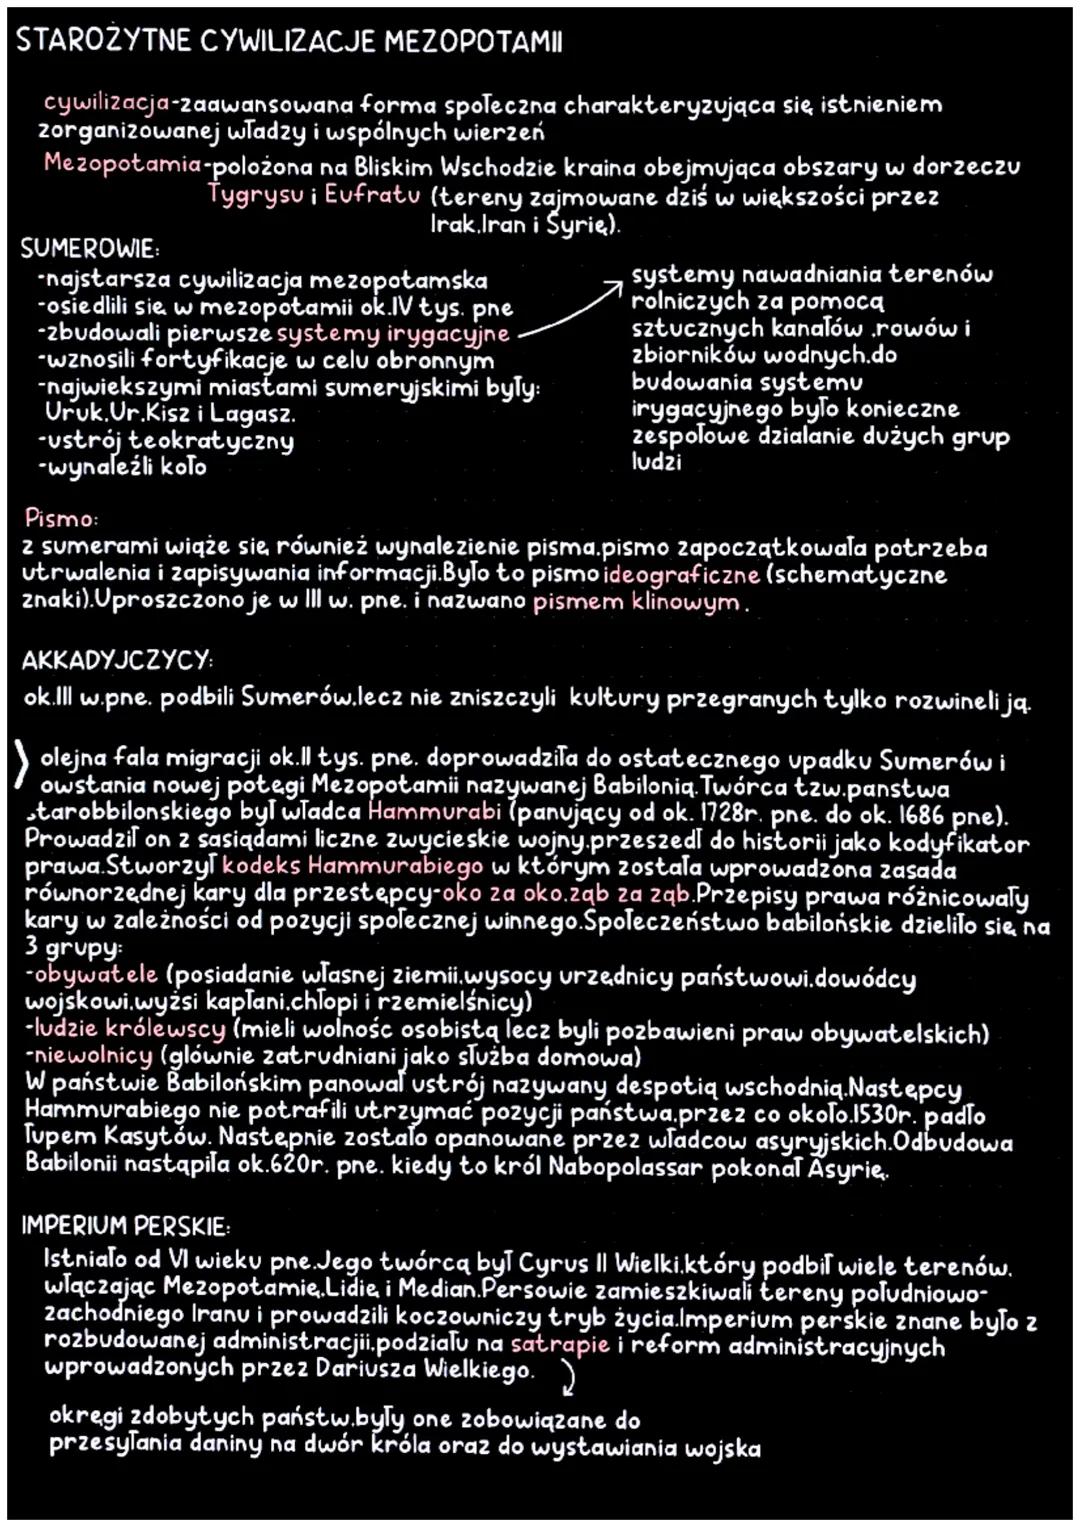 STAROŻYTNE CYWILIZACJE MEZOPOTAMII
cywilizacja-zaawansowana forma społeczna charakteryzująca się istnieniem
zorganizowanej władzy i wspólnych wierzeń
Mezopotamia-polożona na Bliskim Wschodzie kraina obejmująca obszary w dorzeczu
Tygrysu i Eufratu (tereny zajmowane dziś w większości przez
Irak,Iran i Syrię).
SUMEROWIE:
-najstarsza cywilizacja mezopotamska
-osiedlili się w mezopotamii ok.IV tys. pne
-zbudowali pierwsze systemy irygacyjne
-wznosili fortyfikacje w celu obronnym
-najwiekszymi miastami sumeryjskimi były:
Uruk,Ur,Kisz i Lagasz.
-ustrój teokratyczny
-wynaleźli koło
systemy nawadniania terenów
rolniczych za pomocą
sztucznych kanałów ,rowów i
zbiorników wodnych.do
budowania systemu
irygacyjnego było konieczne
zespołowe dzialanie dużych grup
ludzi
Pismo:
z sumerami wiąże się również wynalezienie pisma.pismo zapoczątkowała potrzeba
utrwalenia i zapisywania informacji.Było to pismo ideograficzne (schematyczne
znaki).Uproszczono je w III w. pne. i nazwano pismem klinowym.
AKKADYJCZYCY:
ok.III w.pne. podbili Sumerów,lecz nie zniszczyli kultury przegranych tylko rozwineli ją.
olejna fala migracji ok.II tys. pne. doprowadziła do ostatecznego upadku Sumerów i
owstania nowej potęgi Mezopotamii nazywanej Babilonią.Twórca tzw.panstwa
starobbilonskiego był władca Hammurabi (panujący od ok. 1728r. pne. do ok. 1686 pne).
Prowadził on z sasiądami liczne zwycieskie wojny,przeszedł do historii jako kodyfikator
prawa.Stworzył kodeks Hammurabiego w którym została wprowadzona zasada
równorzędnej kary dla przestępcy-oko za oko,ząb za ząb.Przepisy prawa różnicowały
kary w zależności od pozycji społecznej winnego.Społeczeństwo babilońskie dzieliło się na
3 grupy:
-obywatele (posiadanie własnej ziemii,wysocy urzędnicy państwowi,dowódcy
wojskowi,wyżsi kapłani,chłopi i rzemielśnicy)
-ludzie królewscy (mieli wolnośc osobistą lecz byli pozbawieni praw obywatelskich)
-niewolnicy (glównie zatrudniani jako służba domowa)
W państwie Babilońskim panował ustrój nazywany despotią wschodnią.Następcy
Hammurabiego nie potrafili utrzymać pozycji państwa,przez co około.1530r. padło
łupem Kasytów. Następnie zostało opanowane przez władcow asyryjskich.Odbudowa
Babilonii nastąpiła ok.620r. pne. kiedy to król Nabopolassar pokonał Asyrię.
IMPERIUM PERSKIE:
Istniało od VI wieku pne.Jego twórcą był Cyrus II Wielki,który podbił wiele terenów,
włączając Mezopotamię,Lidię i Median.Persowie zamieszkiwali tereny południowo-
zachodniego Iranu i prowadzili koczowniczy tryb życia.Imperium perskie znane było z
rozbudowanej administracjii,podziału na satrapie i reform administracyjnych
wprowadzonych przez Dariusza Wielkiego.
okręgi zdobytych państw,były one zobowiązane do
przesyłania daniny na dwór króla oraz do wystawiania wojska